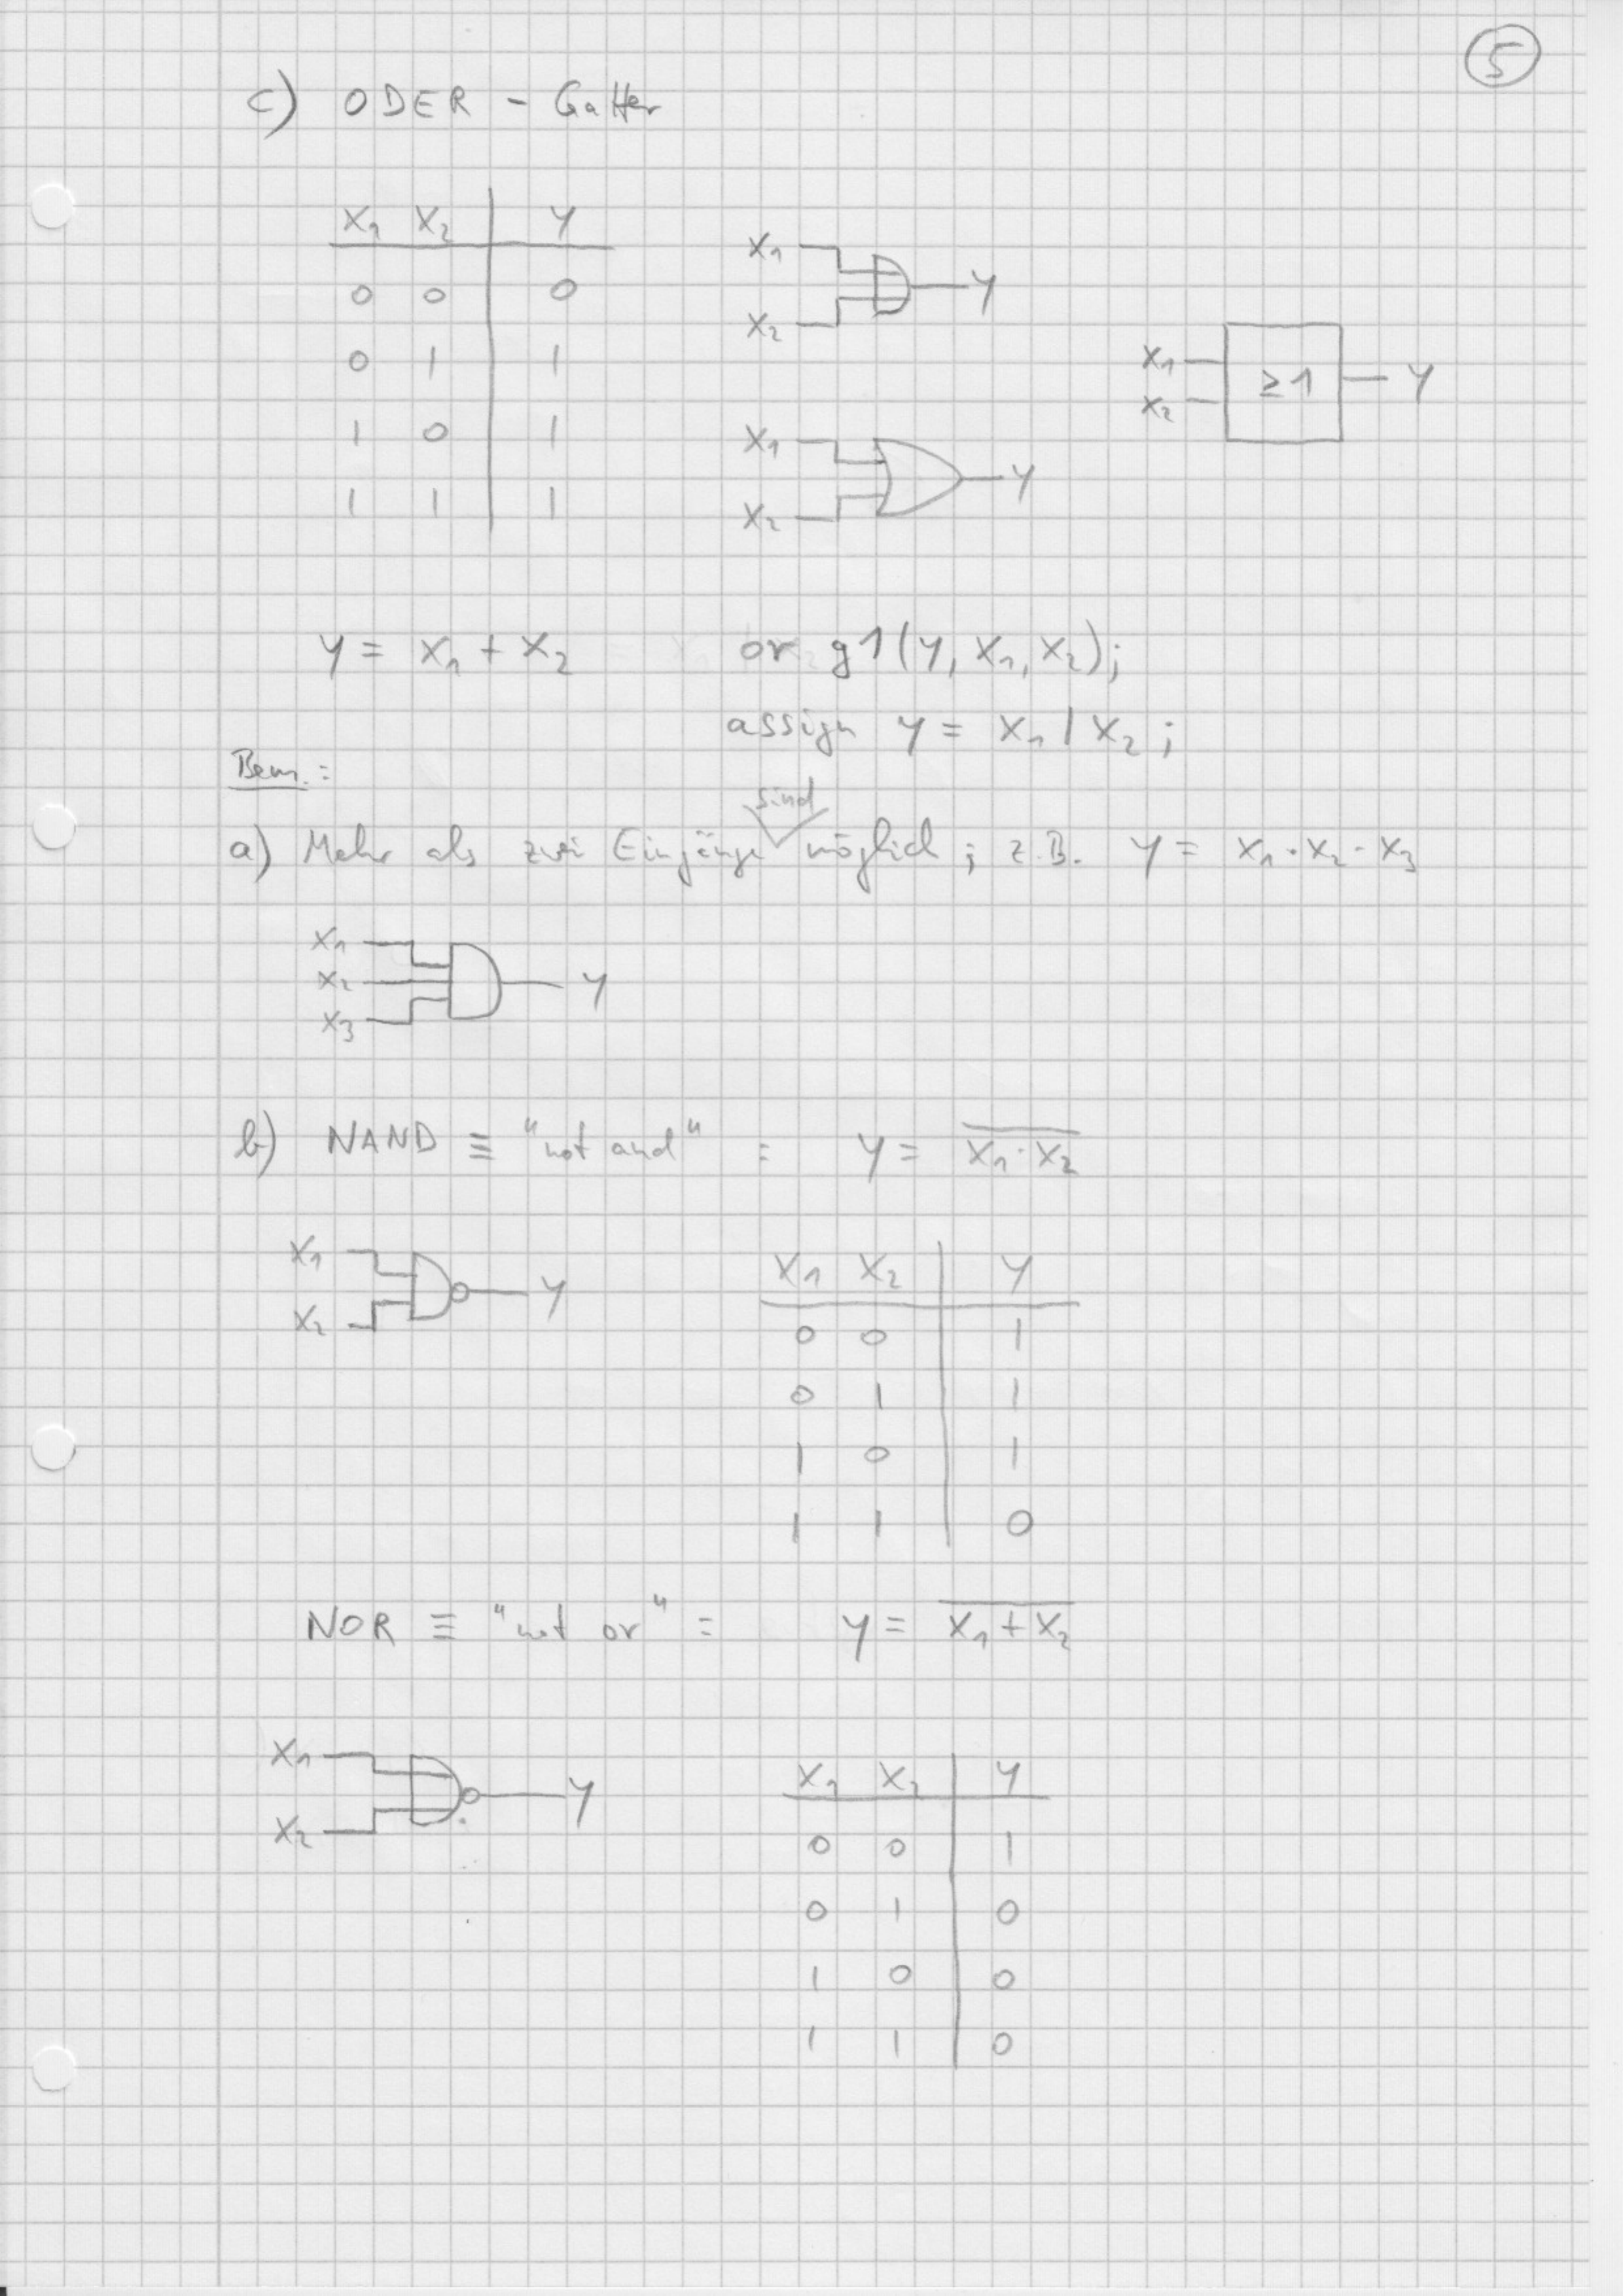 5
c) ODER - Gatter
X₁ X₂ Y
0 0 0
0 1 1
1 0 1
1 1 1
X₁
X₂
Y
X₁
X₂
Y
X₁
X₂
≥1
Y
Y = X₁ + X₂
or g1(Y, X₁, X₂);
assign Y = X₁ | X₂ ;
Bem.:
a) Mehr als zwei Eingänge sind möglich ; z.B. Y = X₁ · X₂ · X₃
X₁
X₂
X₃
Y
b) NAND ≡ "not and" : Y = \overline{X₁ · X₂}
X₁
X₂
Y
X₁ X₂ Y
0 0 1
0 1 1
1 0 1
1 1 0
NOR ≡ "not or" : Y = \overline{X₁ + X₂}
X₁
X₂
Y
X₁ X₂ Y
0 0 1
0 1 0
1 0 0
1 1 0